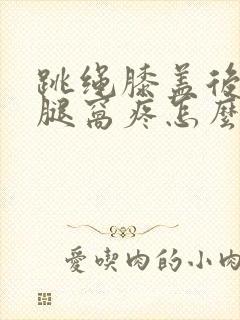 跳绳膝盖後
腿窝疼怎麼
爱喫肉的小肉